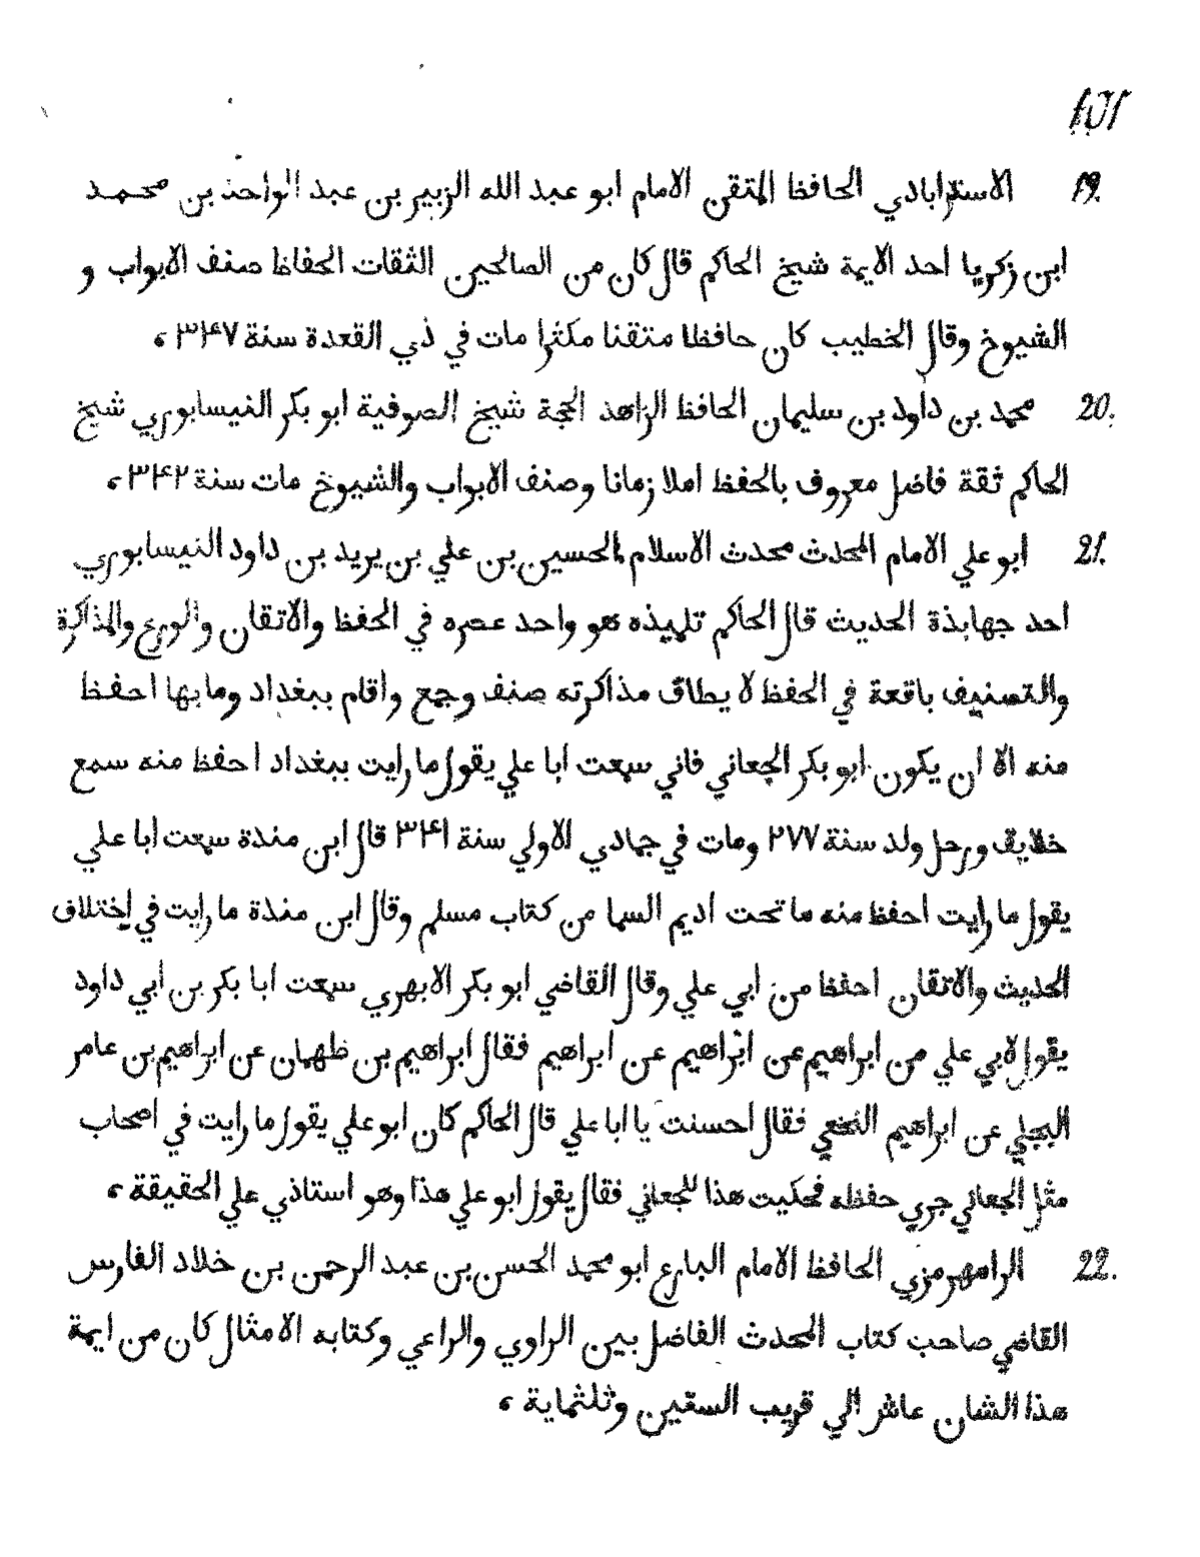 19. الاستراباذي الحافظ المتقن الامام ابو عبد الله الزبير بن عبد الواحد بن محمد
ابن زكريا احد الايمة شيخ الحاكم قال كان من الصالحين الثقات الحفاظ صنف الابواب و
الشيوخ وقال الخطيب كان حافظا متقنا مكثرا مات في ذي القعدة سنة ٣۴٧ ،
20. محمد بن داود بن سليمان الحافظ الزاهد الحجة شيخ الصوفية ابو بكر النيسابوري شيخ
الحاكم ثقة فاضل معروف بالحفظ املا زمانا وصنف الابواب والشيوخ مات سنة ٣۴٢ ،
21. ابو علي الامام المحدث محدث الاسلام الحسين بن علي بن يريد بن داود النيسابوري
احد جهابذة الحديث قال الحاكم تلميذه هو واحد عصره في الحفظ والاتقان والورع والمذاكرة
والتصنيف باقعة في الحفظ لا يطاق مذاكرته صنف وجمع واقام ببغداد وما بها احفظ
منه الا ان يكون ابو بكر الجعاني فاني سمعت ابا علي يقول ما رايت ببغداد احفظ منه سمع
خلايق ورحل ولد سنة ٢٧٧ ومات في جمادي الاولي سنة ٣۴١ قال ابن مندة سمعت ابا علي
يقول ما رايت احفظ منه ما تحت اديم السما من كتاب مسلم وقال ابن مندة ما رايت في اختلاف
الحديث والاتقان احفظ من ابي علي وقال القاضي ابو بكر الابهري سمعت ابا بكر بن ابي داود
يقول لابي علي من ابراهيم عن ابراهيم عن ابراهيم فقال ابراهيم بن طهمان عن ابراهيم بن عامر
البجلي عن ابراهيم النخعي فقال احسنت يا ابا علي قال الحاكم كان ابو علي يقول ما رايت في اصحاب
مثل الجعاني جري حفظه فحكيت هذا للجعاني فقال يقول ابو علي هذا وهو استاذي علي الحقيقة ،
22. الرامهرمزي الحافظ الامام البارع ابو محمد الحسن بن عبد الرحمن بن خلاد الفارس
القاضي صاحب كتاب المحدث الفاضل بين الراوي والراعي وكتابه الامثال كان من ايمة
هذا الشان عاش الي قريب السقين وثلثماية ،